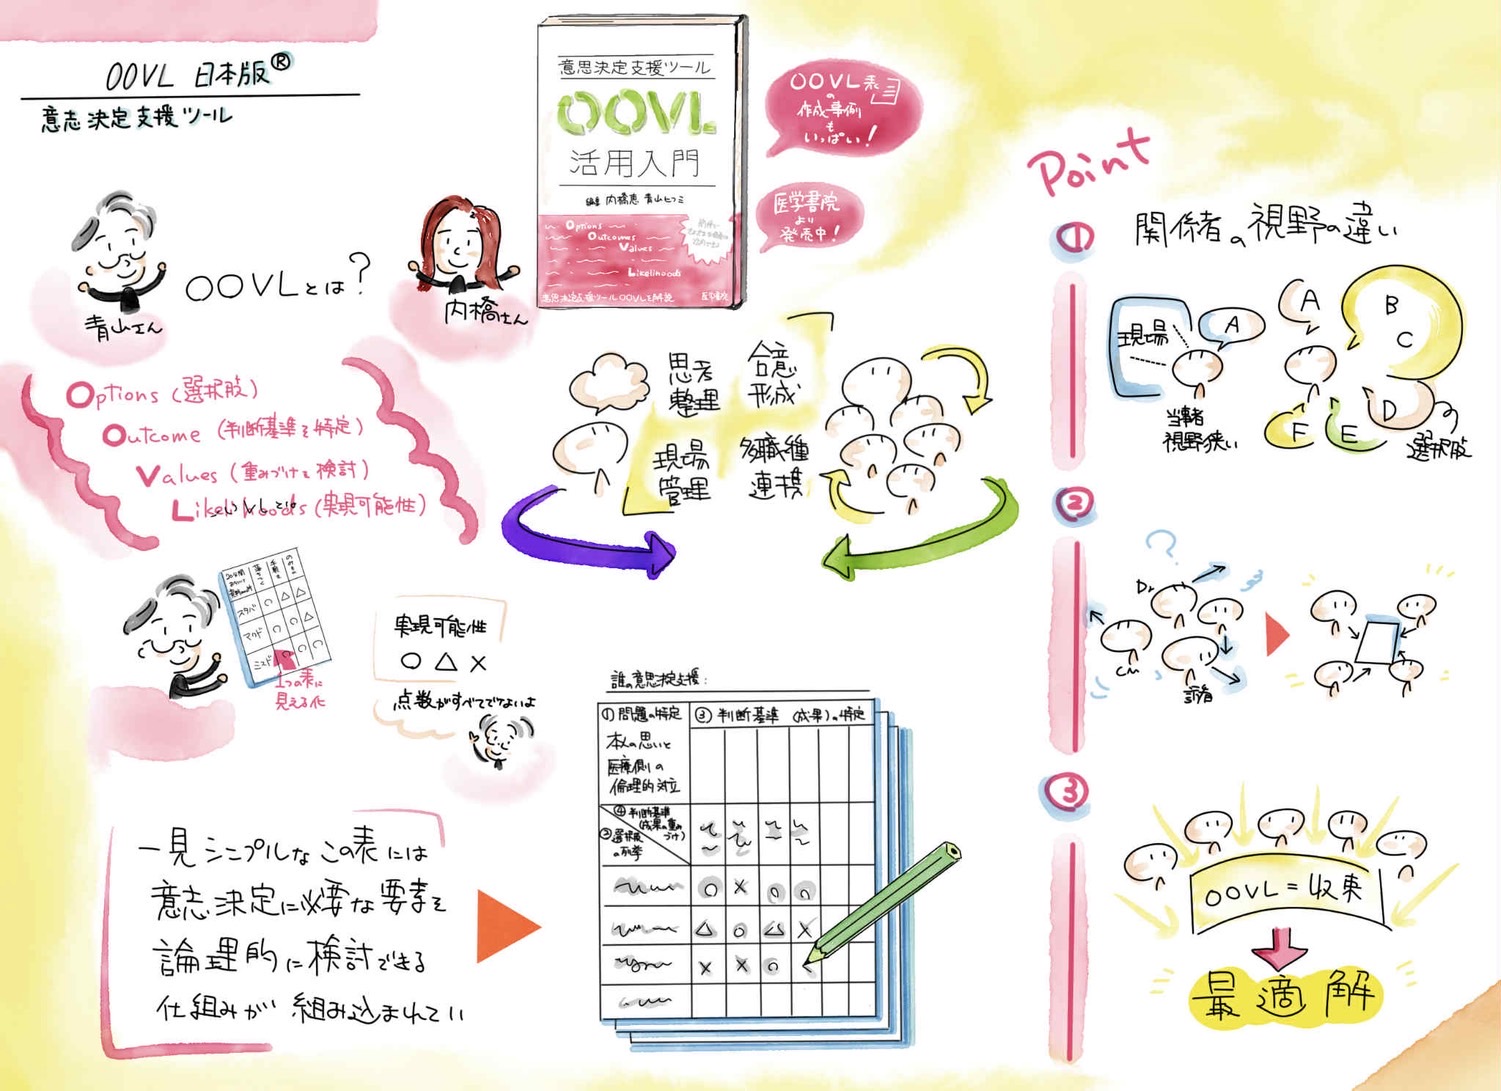 OOVL 日本版®
意志決定支援ツール
青山さん
OOVLとは?
内橋さん
意思決定支援ツール
OOVL
活用入門
編集 内橋恵 青山ヒフミ
Options
Outcomes
Values
Likelihoods
意思決定支援ツールOOVLを解説
医学書院
OOVL表
の
作成事例
も
いっぱい!
医学書院
より
発売中!
Options (選択肢)
Outcome (判断基準を特定)
Values (重みづけを検討)
Likelihoods (実現可能性)
思考
整理
合意
形成
現場
管理
多職種
連携
スタバ ○ △ △
マクド ○ ○ △
ミスド ○ ○ ○
1つの表に
見える化
実現可能性
○ △ ×
点数がすべてでないよ
一見シンプルなこの表には
意志決定に必要な要素を
論理的に検討できる
仕組みが組み込まれてい
誰の意思決定支援:
① 問題の特定
本人の思いと
医療側の
倫理的対立
③ 判断基準 (成果)の特定
④ 判断基準
(成果の重み
づけ)
② 選択肢
の列挙
○ × ○ ○
△ ○ △ ×
× × ○
Point
① 関係者の視野の違い
現場
A
当事者
視野狭い
A
B
C
D
E
F
選択肢
②
?
Dr
CM
③
OOVL=収束
最適解